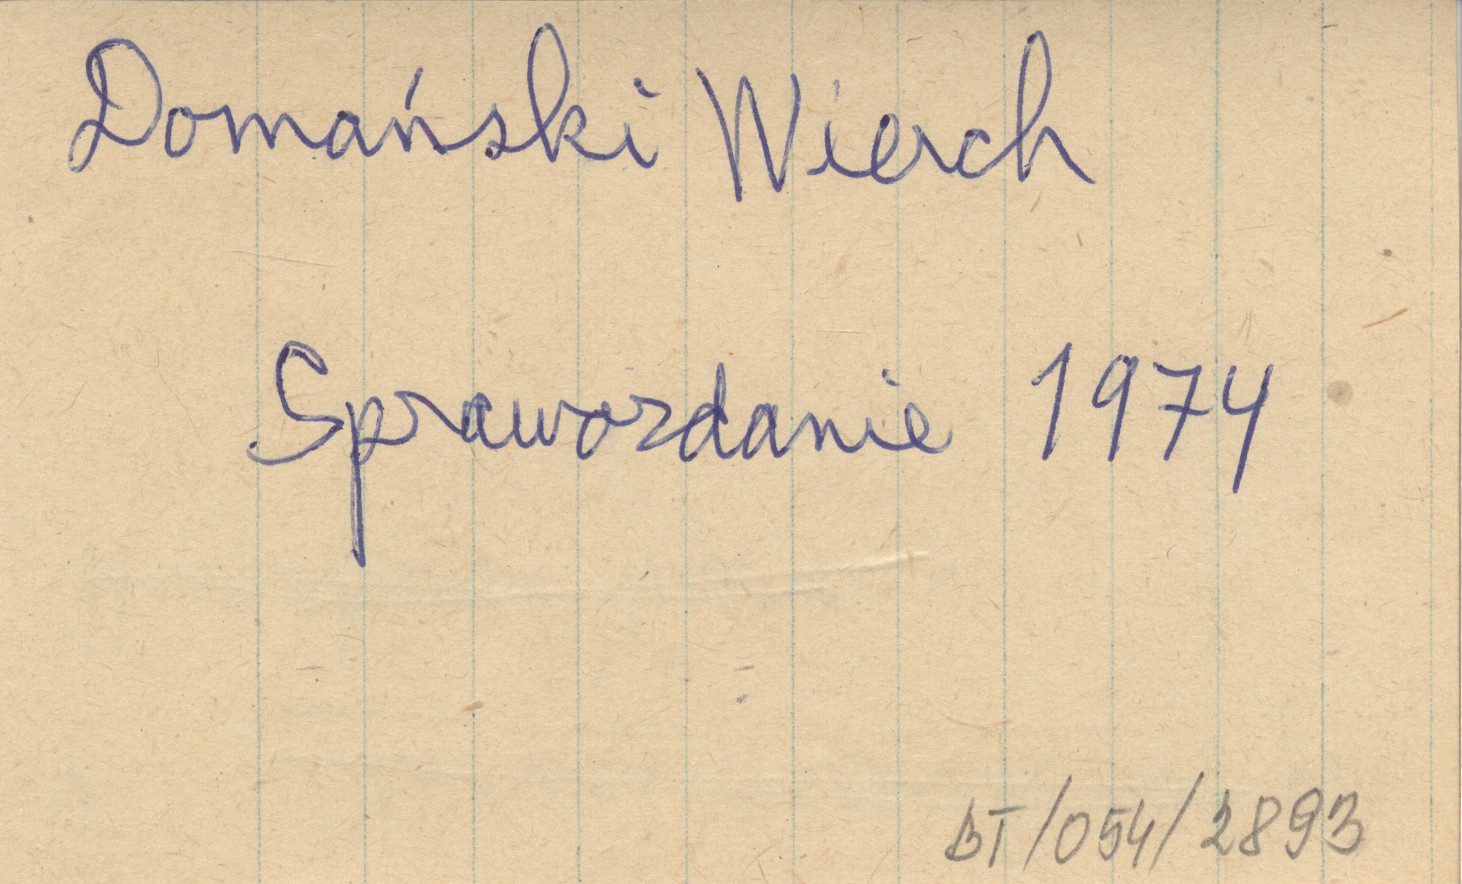 Domański Wierch
Sprawozdanie 1974
BT/054/2893